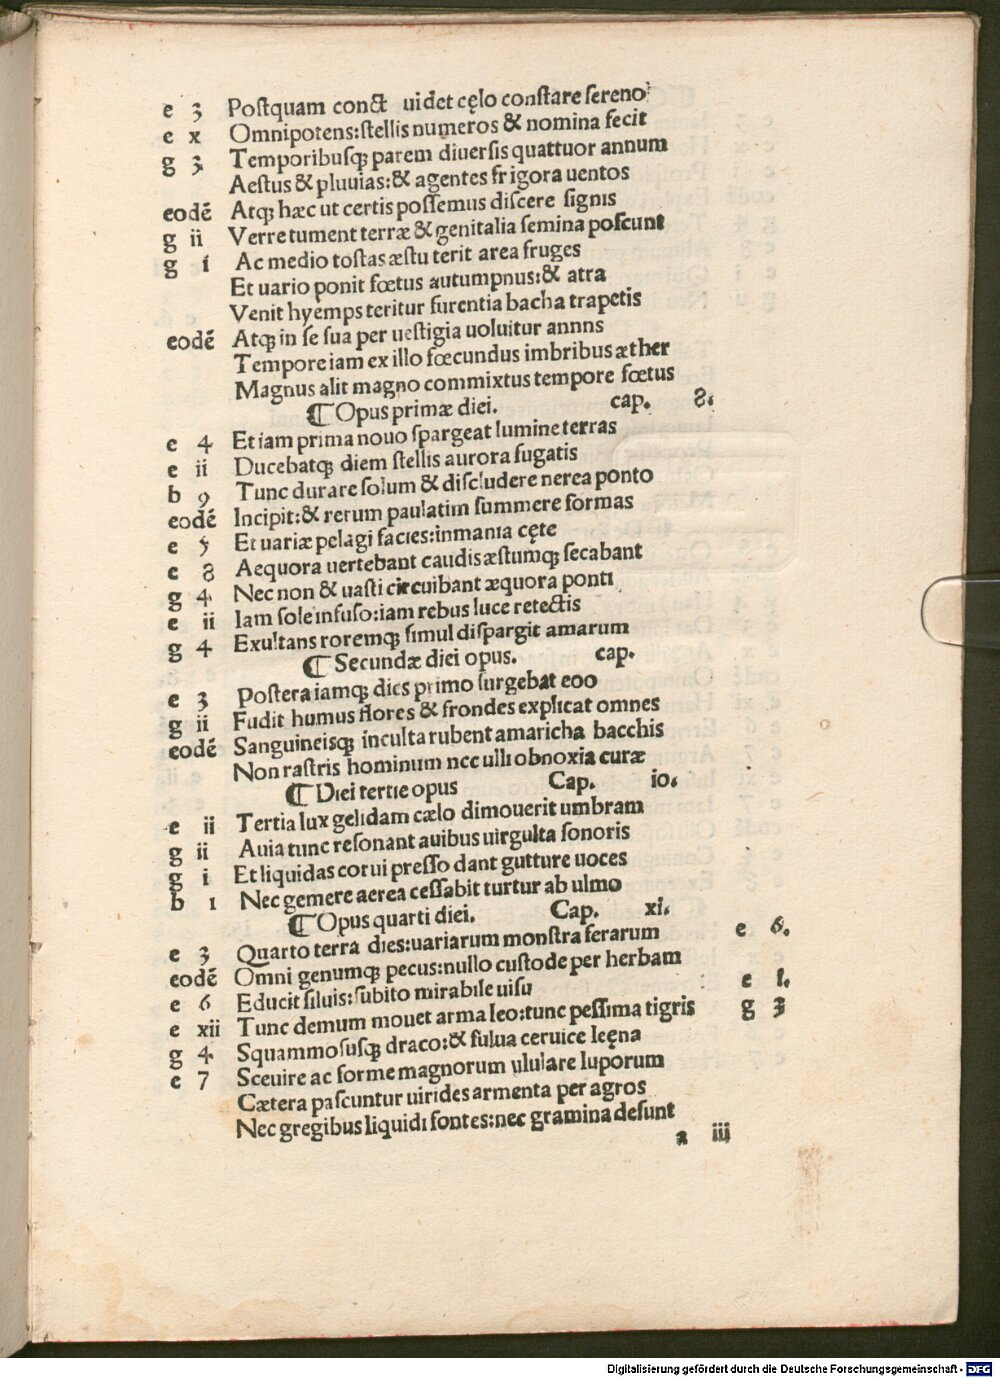 e 3 Postquam conct uidet cęlo constare sereno
e x Omnipotens:stellis numeros & nomina fecit
g 3 Temporibusqꝫ parem diuersis quattuor annum
Aestus & pluuias:& agentes frigora uentos
eodē Atqꝫ hæc ut certis possemus discere signis
g ii Verre tument terræ & genitalia semina poscunt
g i Ac medio tostas æstu terit area fruges
Et uario ponit fœtus autumpnus:& atra
Venit hyemps teritur surentia bacha trapetis
eodē Atqꝫ in se sua per uestigia uoluitur annns
Tempore iam ex illo fœcundus imbribus æther
Magnus alit magno commixtus tempore fœtus
¶ Opus primæ diei. cap. 8.
e 4 Et iam prima nouo spargeat lumine terras
e ii Ducebatqꝫ diem stellis aurora fugatis
b 9 Tunc durare solum & discludere nerea ponto
eodē Incipit:& rerum paulatim summere formas
e 5 Et uariæ pelagi facies:inmania cęte
e 8 Aequora uertebant caudis æstumqꝫ secabant
g 4 Nec non & uasti circuibant æquora ponti
e ii Iam sole infuso:iam rebus luce retectis
g 4 Exultans roremqꝫ simul dispargit amarum
¶ Secundæ diei opus. cap.
e 3 Postera iamqꝫ dies primo surgebat eoo
g ii Fudit humus flores & frondes explicat omnes
eodē Sanguineisqꝫ inculta rubent amaricha bacchis
Non rastris hominum nec ulli obnoxia curæ
¶ Diei tertie opus Cap. io.
e ii Tertia lux gelidam cælo dimouerit umbram
g ii Auia tunc resonant auibus uirgulta sonoris
g i Et liquidas corui presso dant gutture uoces
b 1 Nec gemere aerea cessabit turtur ab ulmo
¶ Opus quarti diei. Cap. xi.
e 3 Quarto terra dies:uariarum monstra ferarum e 6.
eodē Omni genumqꝫ pecus:nullo custode per herbam
e 6 Educit siluis:subito mirabile uisu e 1.
e xii Tunc demum mouet arma leo:tunc pessima tigris g 3
g 4 Squammosusqꝫ draco:& fulua ceruice leęna
e 7 Sceuire ac forme magnorum ululare luporum
Cætera pascuntur uirides armenta per agros
Nec gregibus liquidi fontes:nec gramina desunt
a iii
Digitalisierung gefördert durch die Deutsche Forschungsgemeinschaft - DFG